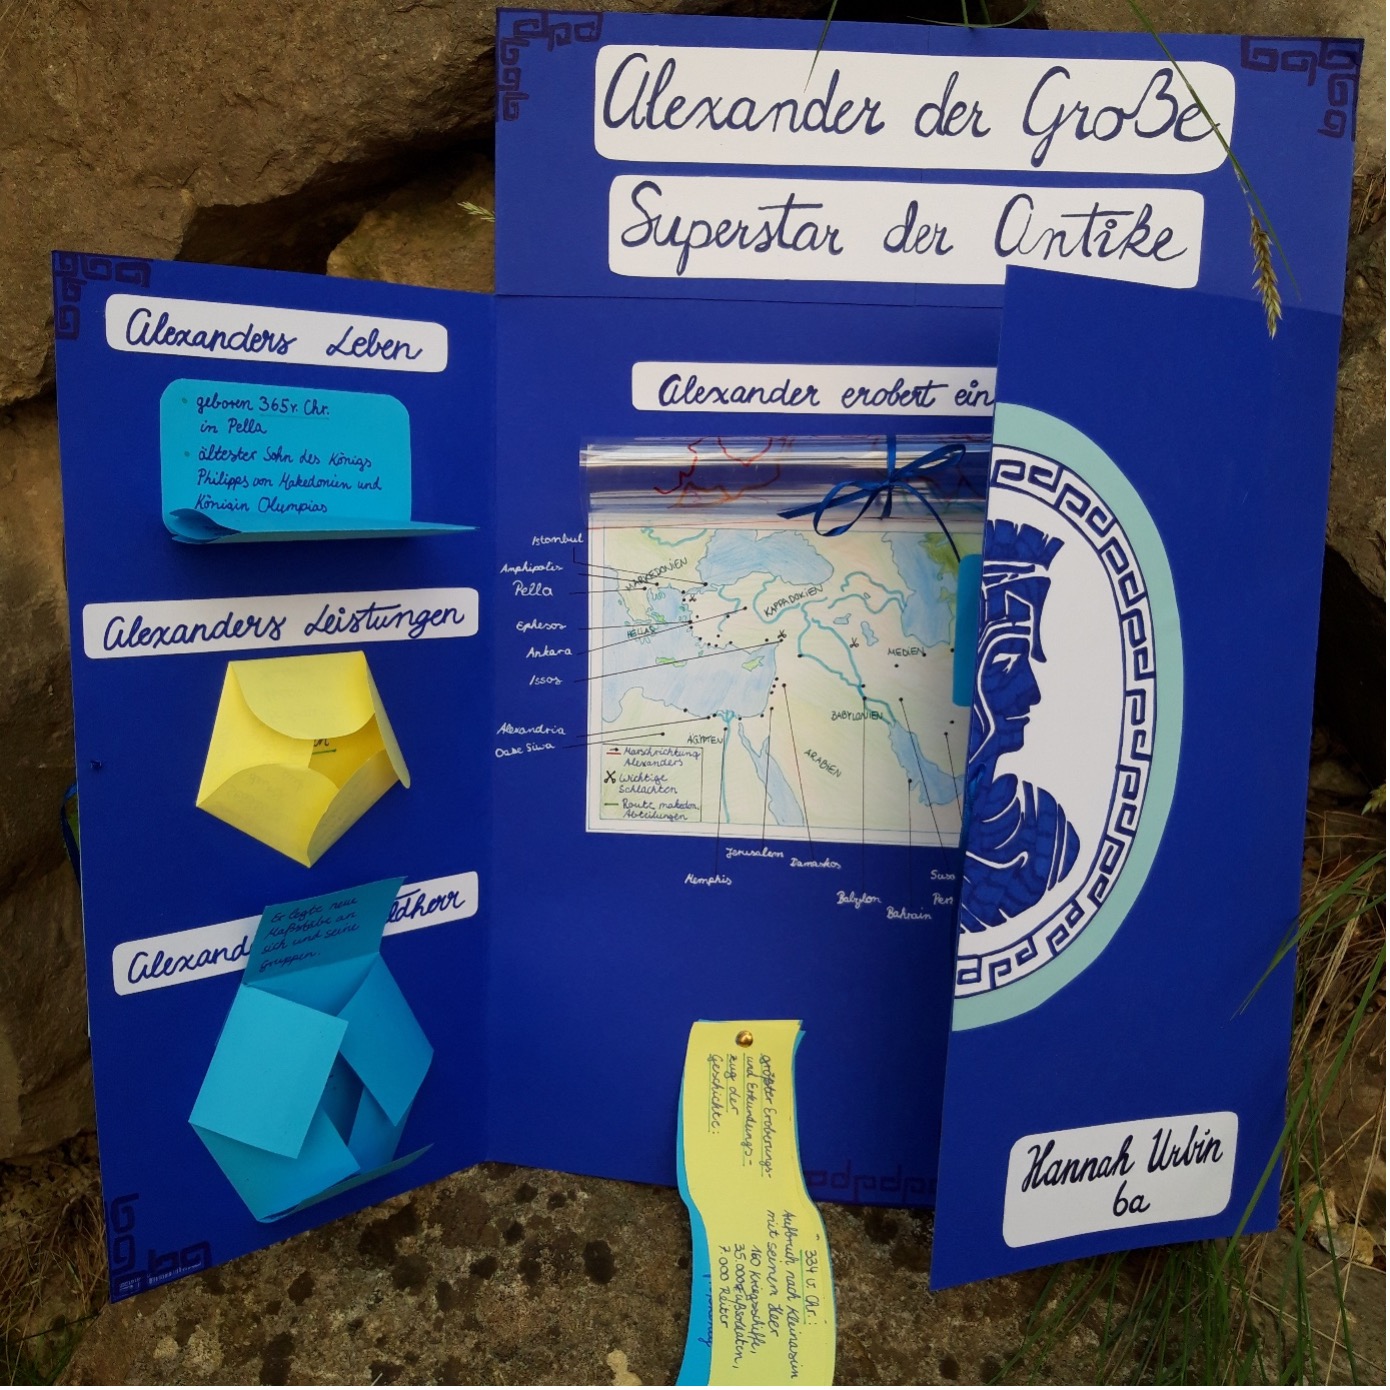 Alexander der Große
Superstar der Antike
Alexanders Leben
geboren 365 v. Chr.
in Pella
ältester Sohn des Königs
Philipps von Makedonien und
Königin Olympias
Alexanders Leistungen
Alexand
ldherr
Er legte neue
Maßstäbe an
sich und seine
Gruppen.
Alexander erobert ein
Istanbul
Amphipolis
Pella
Ephesos
Ankara
Issos
Alexandria
Oase Siwa
MAKEDONIEN
HELLAS
KAPPADOKIEN
MEDIEN
BABYLONIEN
ÄGYPTEN
ARABIEN
Marschrichtung
Alexanders
Wichtige
Schlachten
Route makedon.
Abteilungen
Jerusalem
Damaskos
Memphis
Babylon
Bahrain
Susa
Per
größter Eroberungs-
und Erkundungs-
zug der
Geschichte:
334 v. Chr.:
Aufbruch nach Kleinasien
mit seinem Heer
160 Kriegsschiffe,
35.000 Fußsoldaten,
7 000 Reiter
Hannah Urbin
6a